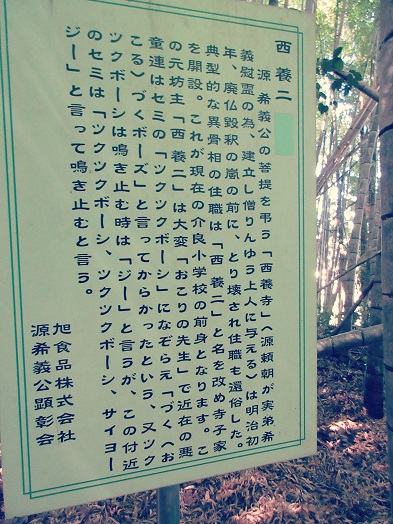 西養二
源希義公の菩提を弔う「西養寺」（源頼朝が実弟希
義慰霊の為、建立し僧りんゆう上人に与える）は明治初
年、廃仏毀釈の嵐の前に、とり壊され住職も還俗した。
典型的な異骨相の住職は「西 養二」と名を改め寺子家
を開設。これが現在の介良小学校の前身となります。こ
の元坊主「西 養二」は大変「おこりの先生」で近在の悪
童連はセミの「ツクツクボーシ」になぞらえ「づく（お
こる）づくボーズ」と言ってからかったという、又ツク
ツクボーシは鳴き止む時は「ジー」と言うが、この付近
のセミは「ツクツクボーシ、ツクツクボーシ、サイヨー
ジー」と言って鳴き止むと言う。
旭食品株式会社
源希義公顕彰会